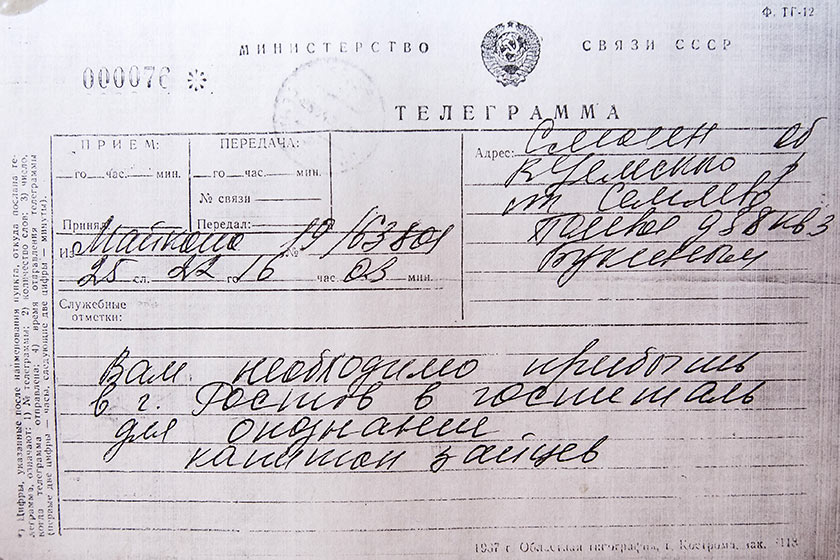 Ф. ТГ-12
МИНИСТЕРСТВО СВЯЗИ СССР
000076 *
ТЕЛЕГРАММА
ПРИЕМ:
го час. мин.
Принял:
ПЕРЕДАЧА:
го час. мин.
№ связи
Передал:
Из Майкопа № 19/63801
25 сл. 22 го 16 час. 03 мин.
Служебные
отметки:
Адрес: Смолен об
Вяземский р
ст Семлево
Полевая д 38 кв 3
Букиным
Вам необходимо прибыть
в г. Ростов в госпиталь
для опознания
капитан зайцев
*) Цифры, указанные после наименования пункта, откуда послана те-
леграмма, означают: 1) № телеграммы; 2) количество слов; 3) число,
когда телеграмма отправлена; 4) время отправления телеграммы
(первые две цифры — часы, следующие две цифры — минуты).
Областная типография, г. Кострома, зак.